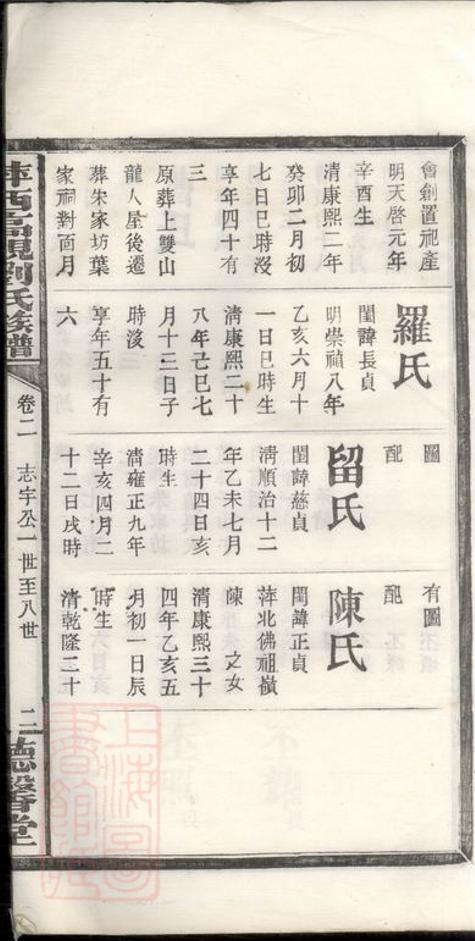 會創置祀產
明天啓元年
辛酉生
清康熙二年
癸卯二月初
七日巳時沒
享年四十有
三
原葬上雙山
龍人屋後遷
葬朱家坊葉
家祠對面月
羅氏
閨諱長貞
明崇禎八年
乙亥六月十
一日巳時生
清康熙二十
八年己巳七
月十三日子
時沒
享年五十有
六
圖
配
留氏
閨諱慈貞
清順治十二
年乙未七月
二十四日亥
時生
清雍正九年
辛亥四月二
十二日戌時
有圖
配
陳氏
閨諱正貞
萍北佛祖嶺
陳 之女
清康熙三十
四年乙亥五
月初一日辰
時生
清乾隆二十
萍西高視劉氏族譜
卷二 志宇公一世至八世
二
德馨堂
上海圖書館藏